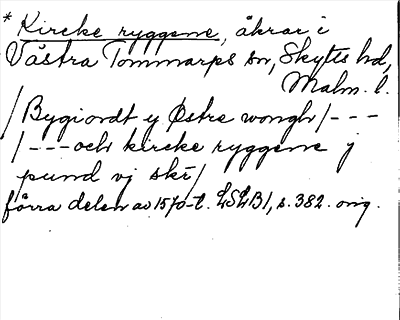 * Kircke ryggene, åkrar i
Västra Tommarps sn, Skytts hd,
Malm. l.
/Bygiordt y Østre wongh/---
/---och kircke ryggene j
pund vj skr/
förra delen av 1570-t. LSLB1, s. 382. orig.